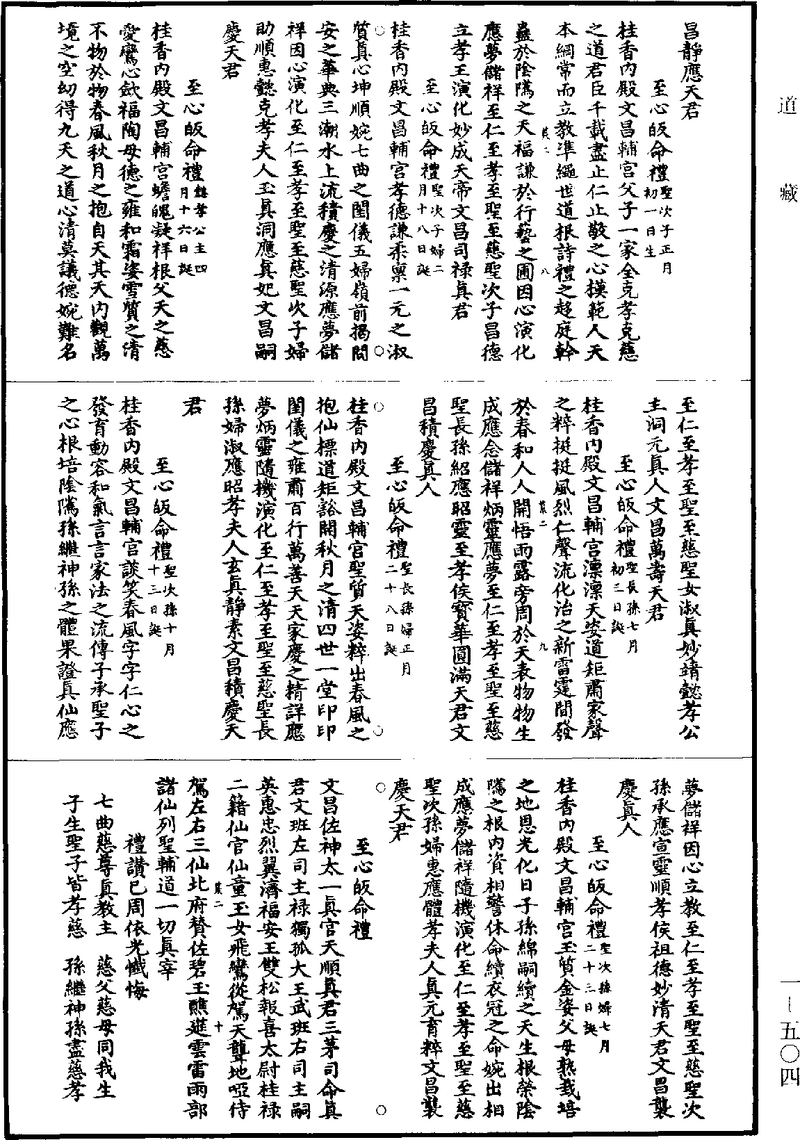 道藏
昌靜應天君
至心皈命禮聖次子正月初一日生
桂香內殿文昌輔宮父子一家全克孝克慈
之道君臣千載盡止仁止敬之心模範人天
本綱常而立教準繩世道根詩禮之趨庭幹
蠱於陰隲之天福謙於行藝之圃因心演化
應夢儲祥至仁至孝至聖至慈聖次子昌德
立孝王演化妙成天帝文昌司祿真君
至心皈命禮聖次子婦二月十八日誕
桂香內殿文昌輔宮孝德謙柔稟一元之淑
質真心坤順婉七曲之閨儀五婦嶺前揭問
安之華典三潮水上流積慶之清源應夢儲
祥因心演化至仁至孝至聖至慈聖次子婦
助順惠懿克孝夫人玉真洞應真妃文昌嗣
慶天君
至心皈命禮懿孝公主四月十六日誕
桂香內殿文昌輔宮蟾魄凝祥根父天之慈
愛鸞心斂福陶母德之雍和霜姿雪質之清
不物於物春風秋月之抱自天其天內觀萬
境之空幼得九天之道心清莫議德婉難名
至仁至孝至聖至慈聖女淑真妙靖懿孝公
主洞元真人文昌萬壽天君
至心皈命禮聖長孫七月初三日誕
桂香內殿文昌輔宮漂漂天姿道矩肅家聲
之粹挺挺風烈仁聲流化治之新雷霆間發
於春和人人開悟雨露旁周於天表物物生
成應念儲祥炳靈應夢至仁至孝至聖至慈
聖長孫紹應昭靈至孝侯寶華圓滿天君文
昌積慶真人
至心皈命禮聖長孫婦正月二十八日誕
桂香內殿文昌輔宮聖質天姿粹出春風之
抱仙標道矩豁開秋月之清四世一堂印印
閨儀之雍肅百行萬善天天家慶之精詳應
夢炳靈隨機演化至仁至孝至聖至慈聖長
孫婦淑應昭孝夫人玄真靜素文昌積慶天
君
至心皈命禮聖次孫十月十三日誕
桂香內殿文昌輔宮談笑春風字字仁心之
發育動容和氣言言家法之流傳子承聖子
之心根培陰隲孫繼神孫之體果證真仙應
夢儲祥因心立教至仁至孝至聖至慈聖次
孫承應宣靈順孝侯祖德妙清天君文昌襲
慶真人
至心皈命禮聖次孫婦七月二十三日誕
桂香內殿文昌輔宮玉質金姿父母熟栽培
之地恩光化日子孫綿嗣續之天生根榮陰
隲之根內資相警休命續衣冠之命婉出相
成應夢儲祥隨機演化至仁至孝至聖至慈
聖次孫婦惠應體孝夫人真元育粹文昌襲
慶天君
至心皈命禮
文昌佐神太一真官天順真君三茅司命真
君文班左司主祿獨孤大王武班右司主嗣
英惠忠烈翼濟福安王雙松報喜太尉桂祿
二籍仙官仙童玉女飛鸞從駕天聾地啞侍
駕左右三仙北府贊佐碧玉醮筵雲雷雨部
諸仙列聖輔道一切真宰
禮讚已周依光懺悔
七曲慈尊真教主　慈父慈母同我生
子生聖子皆孝慈　孫繼神孫盡慈孝
一－五〇四